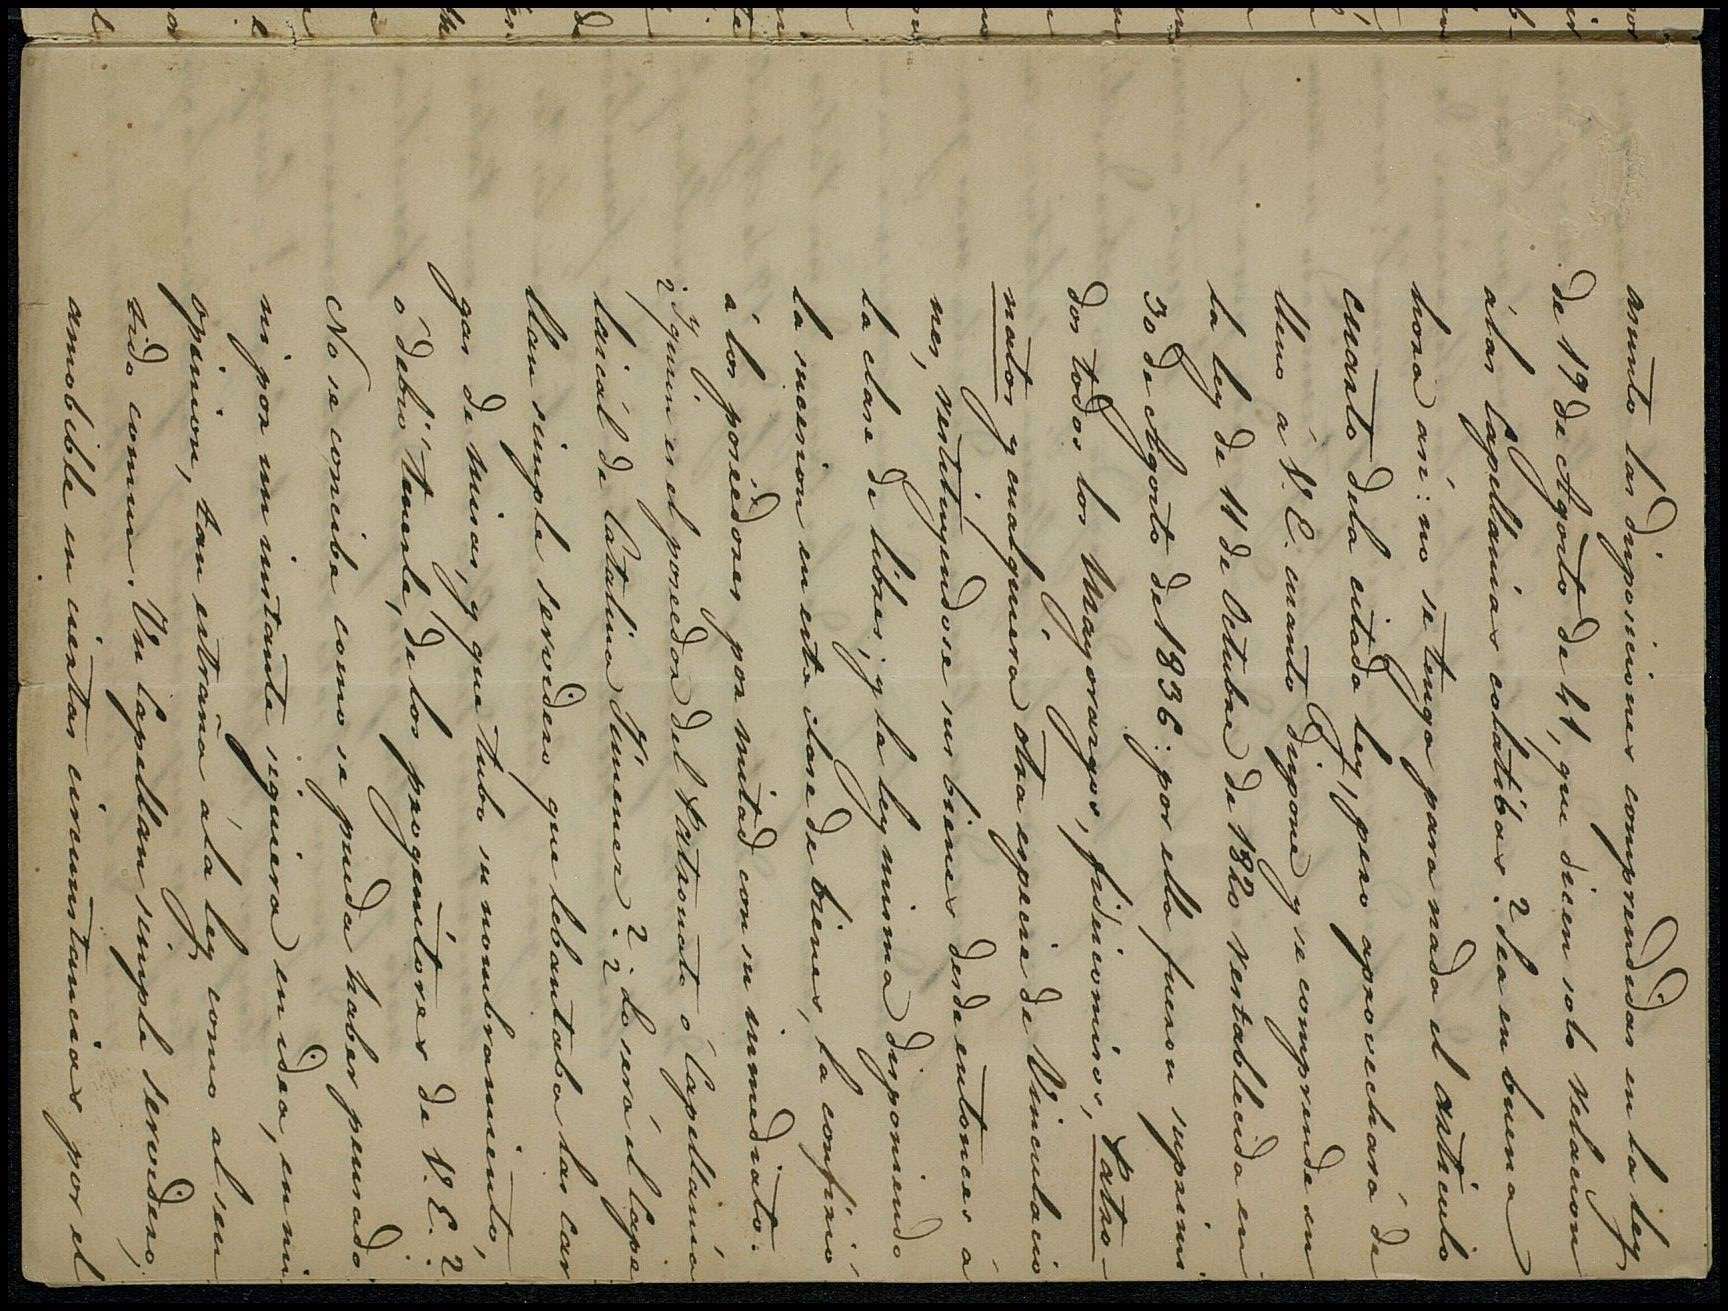 asunto las disposiciones comprendidas en la ley
de 19 de Agosto de 41, que dicen solo relacion
álas Capellanias colatibas? Sea en buena
hora asi: no se tenga para nada el articulo
cuarto dela citada ley, pero aprovechará de
lleno á V. E. cuanto dispone y se comprende en
la ley de 11 de Octubre de 1820 restablecida en
30 de Agosto de 1836: por ella fueron suprimi
dos todos los Mayorazgos, fideicomisos, Patro-
natos y cualquiera otra especie de Vinculacio
nes, restituyendose sus bienes desde entonces á
la clase de libres; y la ley misma disponiendo
la sucesion en esta clase de bienes, la confirió
á los poseèdores por mitad con su inmediato.
¿Y quien es el poseedor del Patronato ó Capellanía
laical de Catalina Jimenez? ¿Lo será el Cape
llan simple servidero que lebantaba las car
gas de misas, y que tubo su nombramiento,
ó debió tenerle, de los progenitores de V. E.?
No se concibe como se pueda haber pensado
ni por un instante siquiera en idea, en mi
opinion, tan estraña á la ley como al sen
tido comun. Un Capellan simple servidero,
amobible en ciertas circunstancias por el